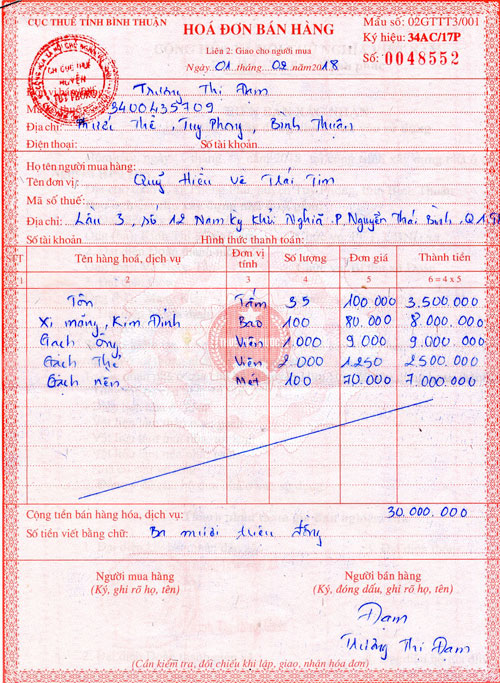 CỤC THUẾ TỈNH BÌNH THUẬN
HOÁ ĐƠN BÁN HÀNG
Mẫu số: 02GTTT3/001
Liên 2: Giao cho người mua
Ký hiệu: 34AC/17P
Ngày 01 tháng 02 năm 2018
Số: 0048552
CHI CỤC THUẾ
HUYỆN
TUY PHONG
Trương Thị Đạm
3400435709
Địa chỉ: Phước Thể, Tuy Phong, Bình Thuận
Điện thoại: Số tài khoản
Họ tên người mua hàng:
Tên đơn vị: Quỹ Hiểu Về Trái Tim
Mã số thuế:
Địa chỉ: Lầu 3, số 12 Nam Kỳ Khởi Nghĩa P. Nguyễn Thái Bình, Q1
Số tài khoản Hình thức thanh toán:
STT Tên hàng hoá, dịch vụ Đơn vị tính Số lượng Đơn giá Thành tiền
1 2 3 4 5 6 = 4 x 5
Tôn Tấm 35 100.000 3.500.000
Xi măng, Kim Đỉnh Bao 100 80.000 8.000.000
Gạch ống Viên 1.000 9.000 9.000.000
Gạch Thẻ Viên 2.000 1.250 2500.000
Gạch nền Mét 100 70.000 7.000.000
Cộng tiền bán hàng hóa, dịch vụ: 30.000.000
Số tiền viết bằng chữ: Ba mươi triệu đồng
Người mua hàng Người bán hàng
(Ký, ghi rõ họ, tên) (Ký, đóng dấu, ghi rõ họ, tên)
Đạm
Trương Thị Đạm
(Cần kiểm tra, đối chiếu khi lập, giao, nhận hóa đơn)